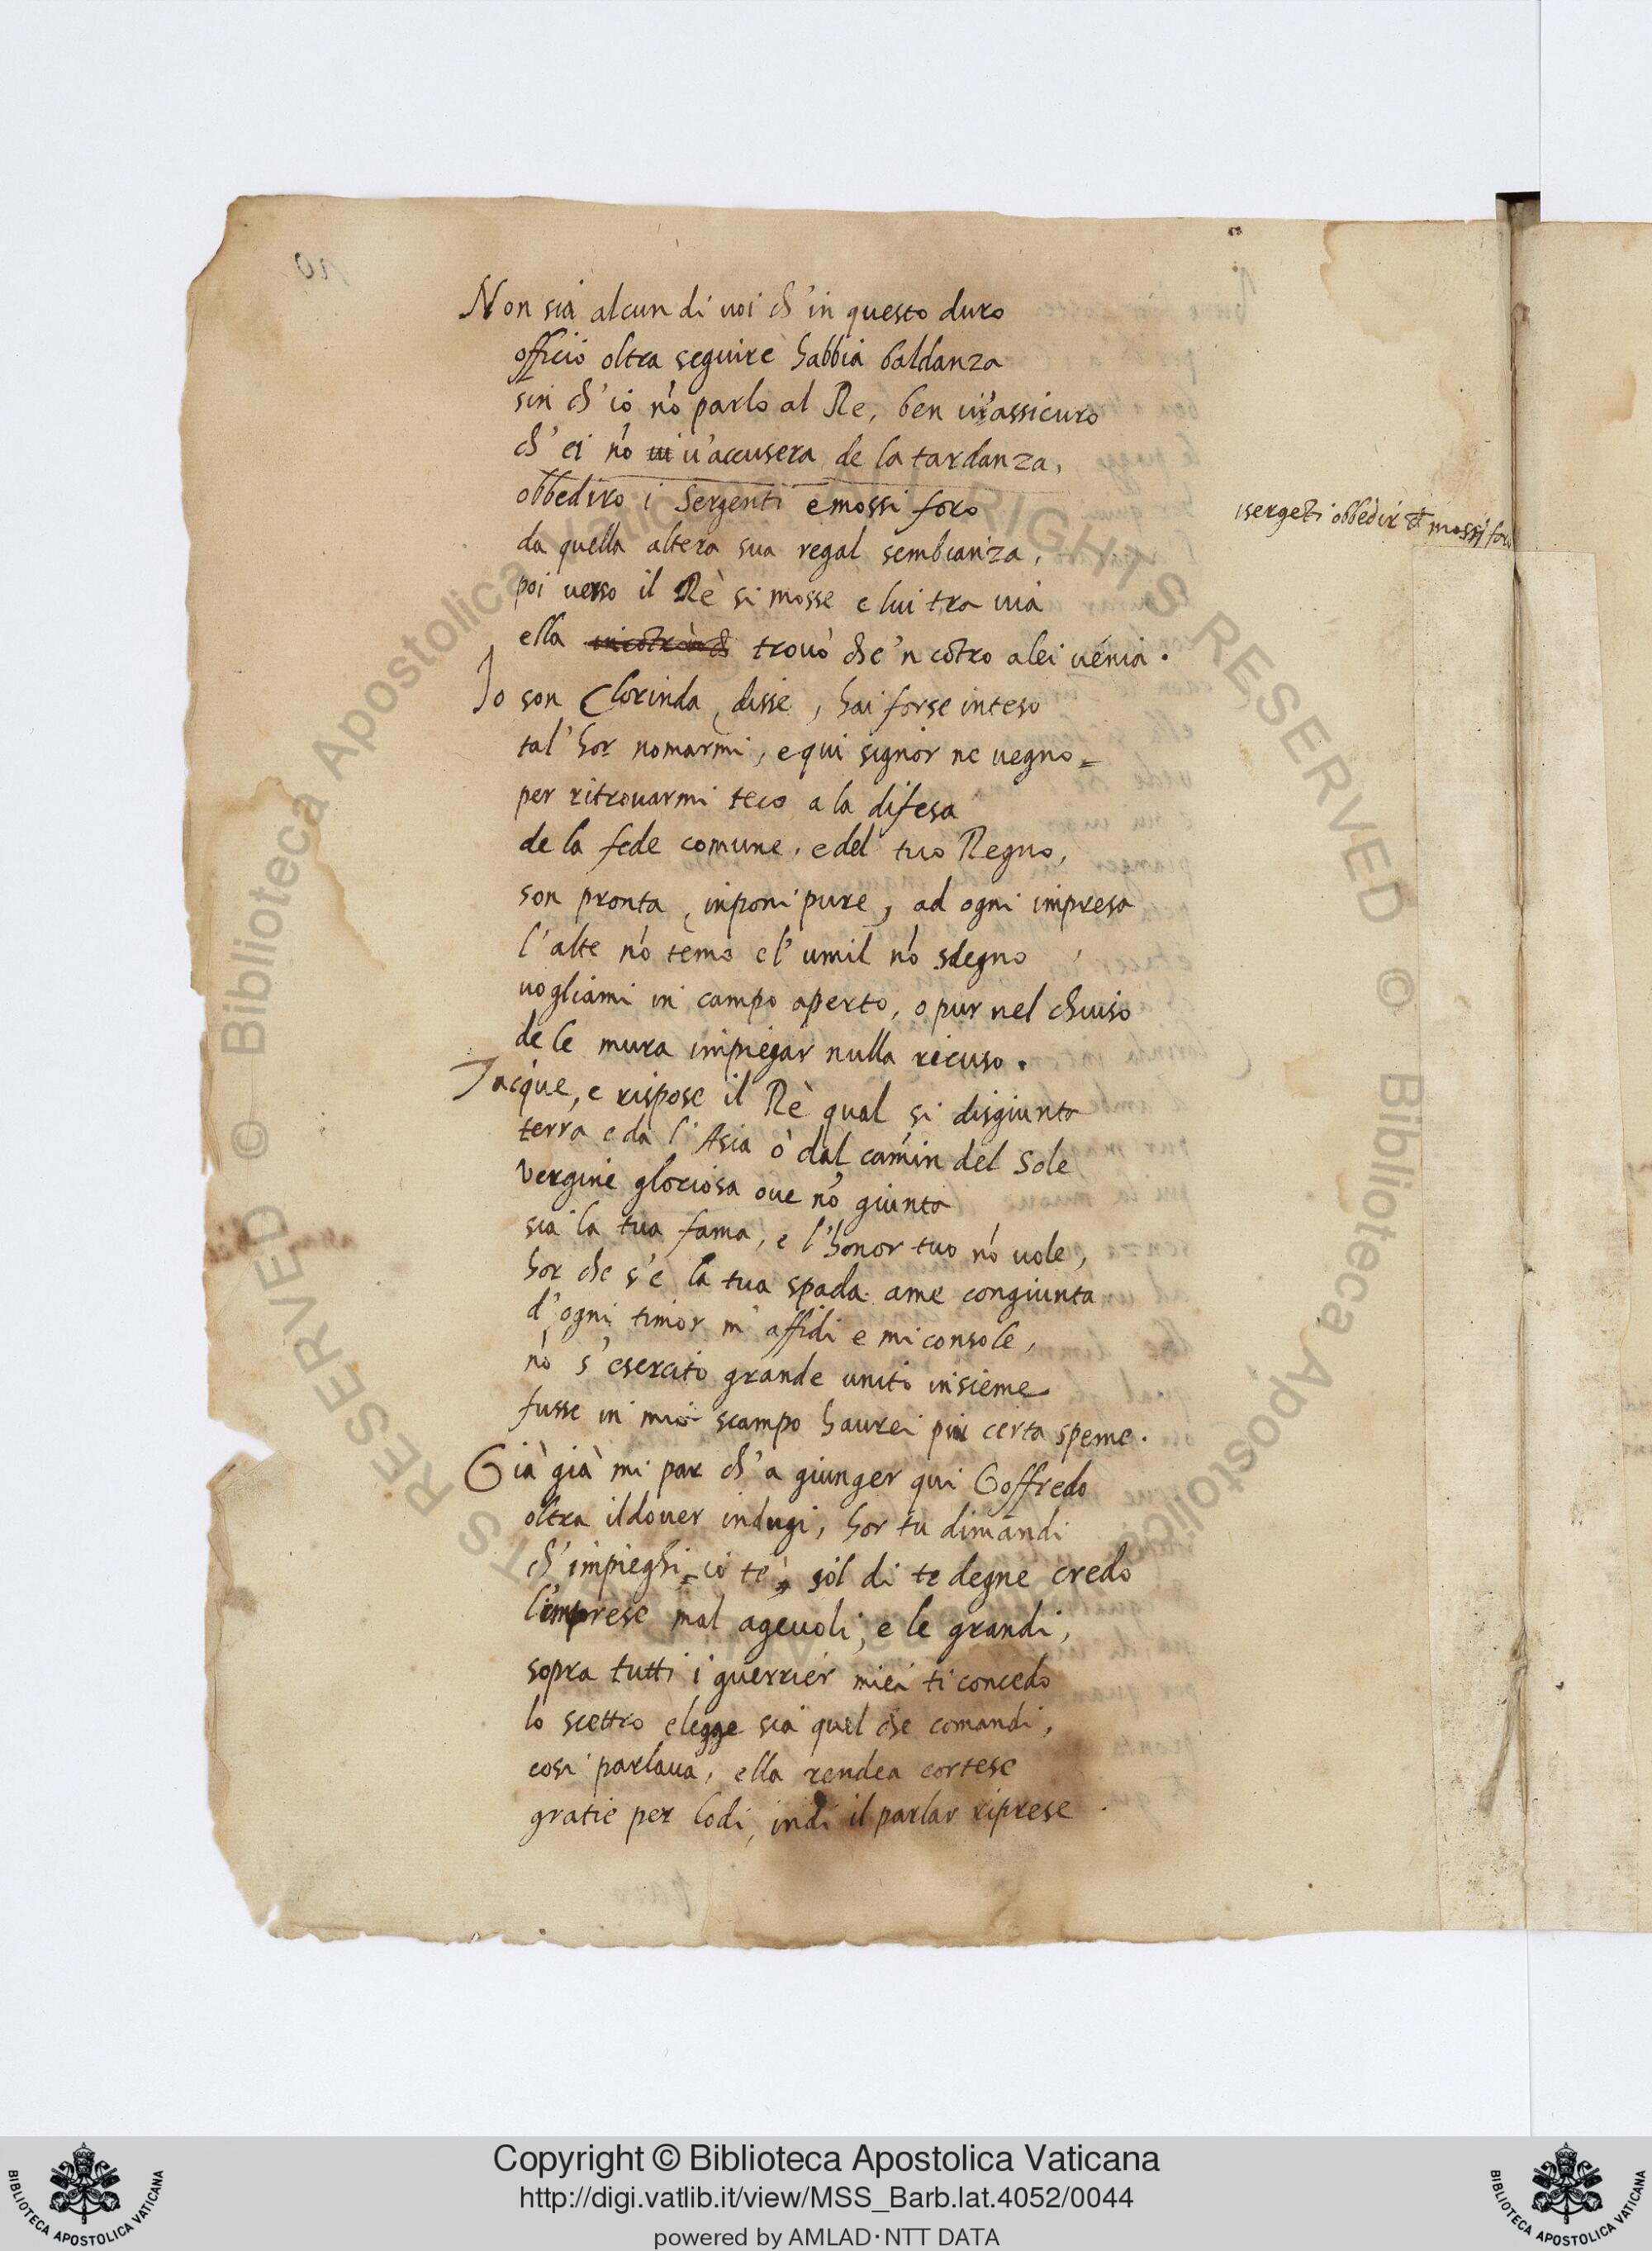 Non sia alcun di uoi ch'in questo duro
officio oltra seguire habbia baldanza
sin ch'io nō parlo al Re, ben u'assicuro
ch'ei nō ui u'accusera de la tardanza,
obbediro i Sergenti e mossi foro
isergēti obbedir et mossi foro
da quella altera sua regal sembianza,
poi uerso il Rè si mosse e lui tra uia
ella trouò che'n cōtro a lei uenia.
Io son Clorinda, disse, hai forse inteso
tal'hor nomarmi, e qui signor ne uegno
per ritrouarmi teco a la difesa
de la fede comune, e del tuo Regno,
son pronta, inponi pure, ad ogni impresa
l'alte nō temo e l'umil nō sdegno
uogliami in campo aperto, o pur nel chiuso
de le mura impiegar nulla ricuso.
Tacque, e rispose il Rè qual si disgiunta
terra e da l'Asia ò dal camin del Sole
Vergine gloriosa oue nō giunta
sia la tua fama, e l'honor tuo nō uole,
hor che s'è la tua spada a me congiunta
d'ogni timor m'affidi e mi console,
nō s'esercito grande unito insieme
fusse in mio scampo haurei più certa speme.
Già già mi par ch'a giunger qui Goffredo
oltra il douer indugi, hor tu dimandi
ch'impieghi io te, sol di te degne credo
l'imprese mal ageuoli, e le grandi,
sopra tutti i guerrier miei ti concedo
lo scettro e legge sia quel che comandi,
cosi parlaua, ella rendea cortese
gratie per lodi, indi il parlar riprese.
RIGHTS RESERVED © Biblioteca Apostolica
RESERVED © Biblioteca Apostolica Vaticana
Copyright © Biblioteca Apostolica Vaticana
http://digi.vatlib.it/view/MSS_Barb.lat.4052/0044
powered by AMLAD·NTT DATA
BIBLIOTECA APOSTOLICA VATICANA
BIBLIOTECA APOSTOLICA VATICANA